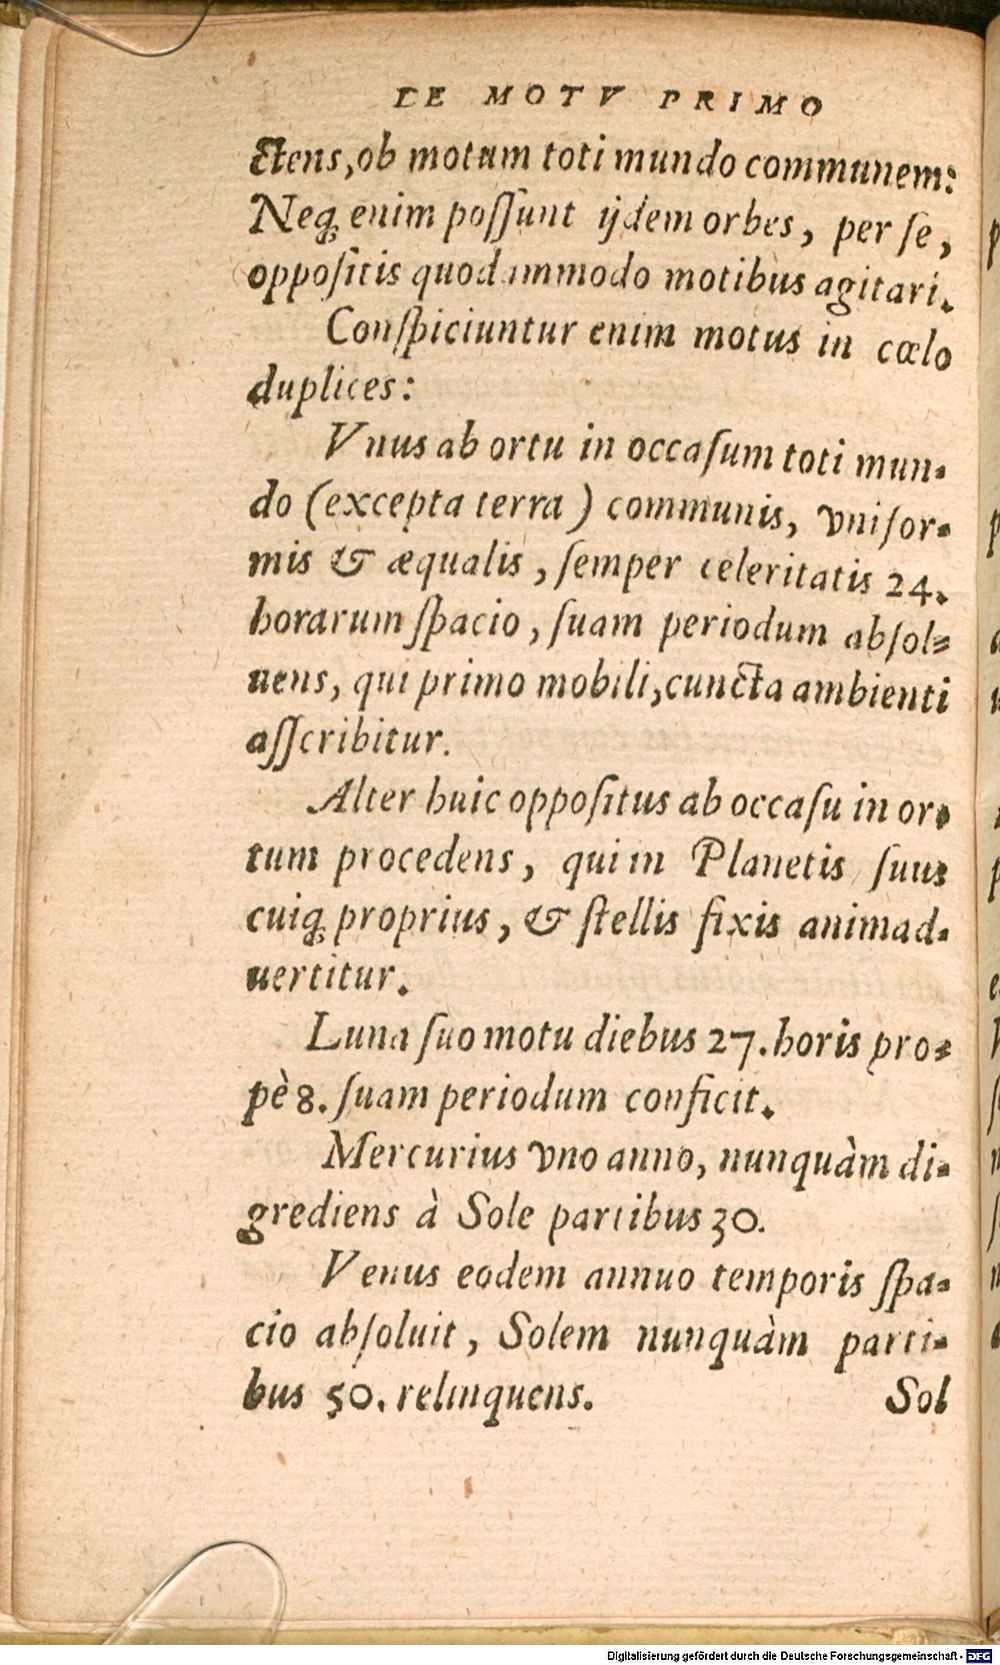 DE MOTV PRIMO
ctens, ob motum toti mundo communem:
Neq́; enim poſſunt ijdem orbes, per ſe,
oppoſitis quodammodo motibus agitari.
Conſpiciuntur enim motus in cœlo
duplices:
Vnus ab ortu in occaſum toti mun-
do (excepta terra) communis, vnifor-
mis & æqualis, ſemper celeritatis 24.
horarum ſpacio, ſuam periodum abſol-
uens, qui primo mobili, cuncta ambienti
aſſcribitur.
Alter huic oppoſitus ab occaſu in or-
tum procedens, qui in Planetis ſuus
cuiq́; proprius, & ſtellis fixis animad-
uertitur.
Luna ſuo motu diebus 27. horis pro-
pè 8. ſuam periodum conficit.
Mercurius vno anno, nunquàm di-
grediens à Sole partibus 30.
Venus eodem annuo temporis ſpa-
cio abſoluit, Solem nunquàm parti-
bus 50. relinquens.
Sol
Digitalisierung gefördert durch die Deutsche Forschungsgemeinschaft - DFG